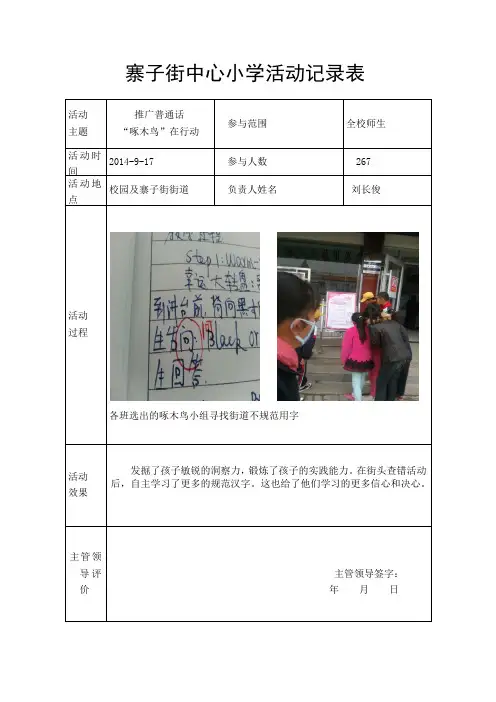 寨子街中心小学活动记录表
活动
主题
推广普通话
“啄木鸟”在行动
参与范围
全校师生
活动时
间
2014-9-17
参与人数
267
活动地
点
校园及寨子街街道
负责人姓名
刘长俊
活动
过程
step1:Warm-
幸运大转盘:
到讲台前,
生答问:Black or
生回答.
各班选出的啄木鸟小组寻找街道不规范用字
活动
效果
发掘了孩子敏锐的洞察力,锻炼了孩子的实践能力。在街头查错活动
后,自主学习了更多的规范汉字。这也给了他们学习的更多信心和决心。
主管领
导评
价
主管领导签字:
年 月 日